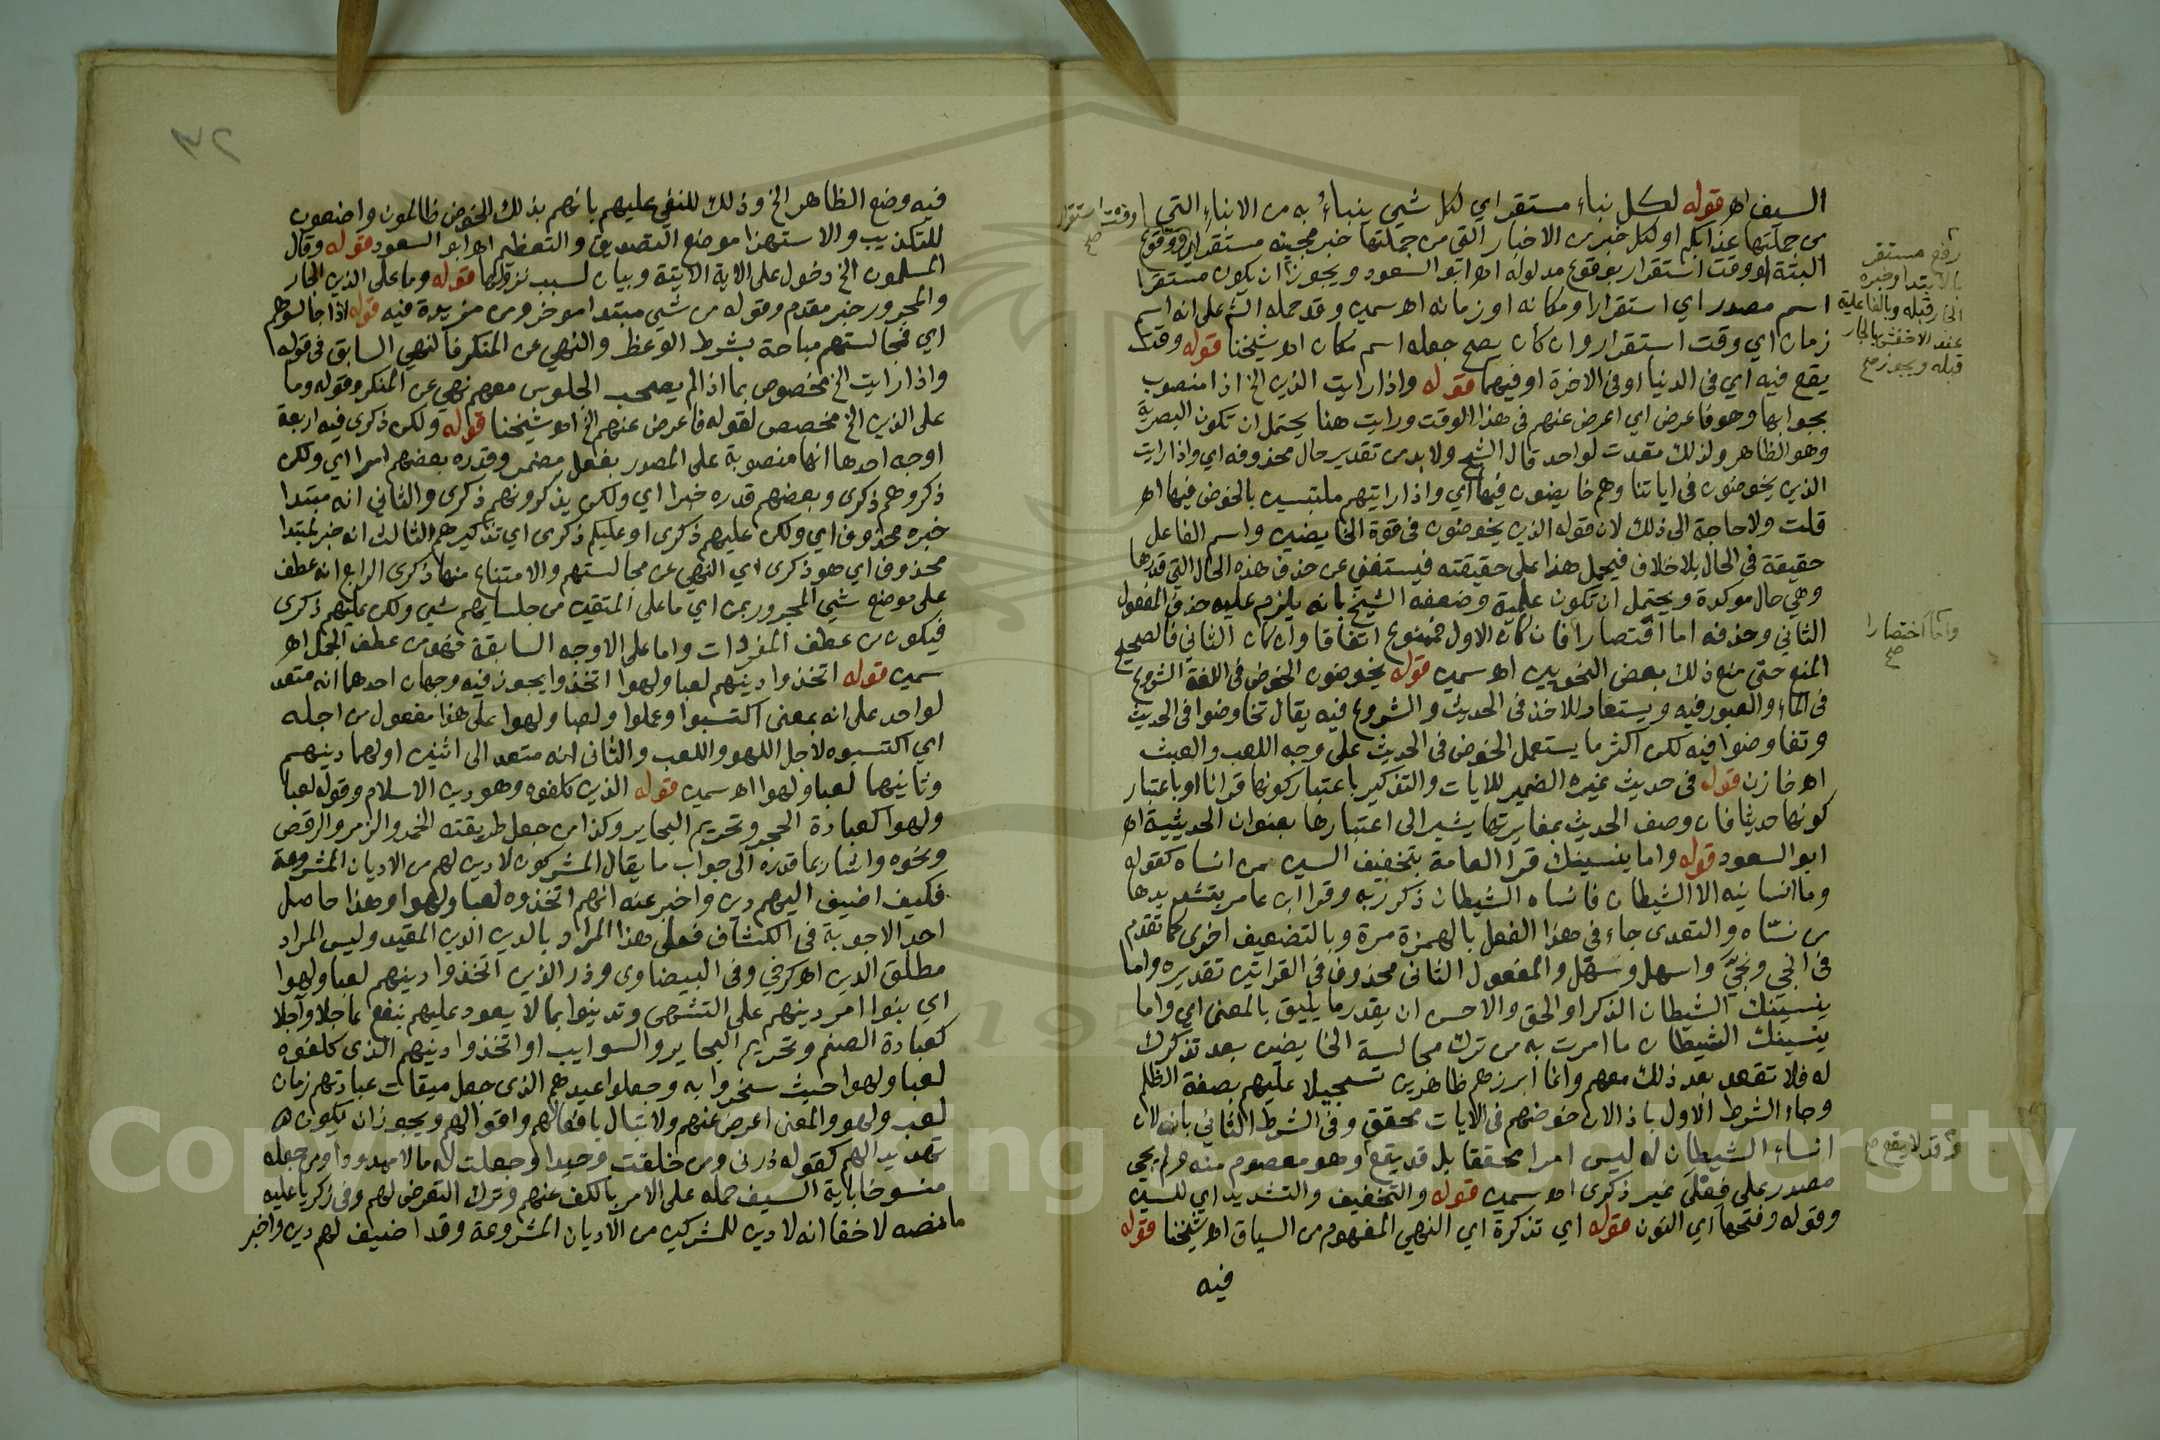 السيف اهـ قوله لكل نباء مستقر اي لكل شيء ينباء به من الانباء التي
من جملتها عذابكم او لكل خبر من الاخبار التي من جملتها خبر مجيئه مستقر اي وقوع
البتة او وقت استقرار بوقوع مدلوله اهـ ابو السعود ويجوز ان يكون مستقرا
اسم مصدر اي استقرار او مكانه او زمانه اهـ سمين وقد حمله الش على انه اسم
زمان اي وقت استقرار وان كان يصح جعله اسم مكان اهـ شيخنا قوله وقت
يقع فيه اي في الدنيا او في الاخرة او فيهما قوله واذا رايت الذين الخ اذا منصوب
بجوابها وهو فاعرض اي اعرض عنهم في هذا الوقت ورايت هنا يحتمل ان تكون البصرية
وهو الظاهر ولذلك تعدت لواحد قال الشيخ ولا بد من تقدير حال محذوفه اي واذا رايت
الذين يخوضون في اياتنا وهم خايضون فيها اي واذا رايتهم ملتبسين بالخوض فيها اهـ
قلت ولا حاجة الى ذلك لان قوله الذين يخوضون في قوة الخايضين واسم الفاعل
حقيقة في الحال بلا خلاف فيحمل هذا على حقيقته فيستغني عن حذف هذه الحال التي قدرها
وهي حال موكدة ويحتمل ان تكون علمية وضعفه الشيخ بانه يلزم عليه حذف المفعول
الثاني وحذفه اما اقتصارا فان كان الاول فممنوع اتفاقا وان كان الثاني فالصحيح
المنع حتى منع ذلك بعض النحويين اهـ سمين قوله يخوضون الخوض في اللغة الشروع
في الماء والعبور فيه ويستعار للاخذ في الحديث والشروع فيه يقال تخاوضوا في الحديث
وتفاوضوا فيه لكن اكثر ما يستعمل الخوض في الحديث على وجه اللعب والعبث
اهـ خازن قوله في حديث غيره الضمير للايات والتذكير باعتبار كونها قرانا او باعتبار
كونها حديثا فان وصف الحديث بمغايرتها يشير الى اعتبارها بعنوان الحديثية اهـ
ابو السعود قوله واما ينسينك قرا العامة بتخفيف السين من انساه كقوله
وما انسانيه الا الشيطان فانساه الشيطان ذكر ربه وقرا ابن عامر بتشديدها
من نسّاه والتعدي جاء في هذا الفعل بالهمزة مرة وبالتضعيف اخرى كما تقدم
في انجي ونجيّ واسهل وسهّل والمفعول الثاني محذوف في القراتين تقديره واما
ينسينك الشيطان الذكر او الحق والاحسن ان يقدر ما يليق بالمعنى اي واما
ينسينك الشيطان ما امرت به من ترك مجالسة الخايضين بعد تذكرك
له فلا تقعد بعد ذلك معهم وانما ابرزهم ظاهرين تسجيلا عليهم بصفة الظلم
وجاء الشرط الاول باذا لان خوضهم في الايات محقق وفي الشرط الثاني بان لان
انساء الشيطان له ليس امرا محققا بل قد يقع وهو معصوم منه ولم يجي
مصدر على فعلى غير ذكرى اهـ سمين قوله والتخفيف والتشديد اي للسين
وقوله وفتحها اي النون قوله اي تذكرة اي النهي المفهوم من السياق اهـ شيخنا قوله
فيه
او وقت استقرار صح
رفع مستقر
بالابتدا وخبره
الجار قبله وبالفاعلية
عند الاخفش بالجار
قبله ويجوز صح
واما اختصارا
صح
وقد لا يقع صح
فيه وضع الظاهر الخ وذلك للنعي عليهم بانهم بذلك الخوض ظالمون واضعون
للتكذيب والاستهزا موضع التصديق والتعظيم اهـ ابو السعود قوله وقال
المسلمون الخ دخول على الاية الاتية وبيان لسبب نزولها قوله وما على الذين الجار
والمجرور خبر مقدم وقوله من شي مبتدا موخر ومن مزيدة فيه قوله اذا جالسوهم
اي فمجالستهم مباحة بشرط الوعظ والنهي عن المنكر فالنهي السابق في قوله
واذا رايت الخ مخصوص بما اذا لم يصحب الجلوس معهم نهي عن المنكر وقوله وما
على الذين الخ مخصص لقوله فاعرض عنهم الخ اهـ شيخنا قوله ولكن ذكرى فيه اربعة
اوجه احدها انها منصوبة على المصدر بفعل مضمر وقدره بعضهم امرا اي ولكن
ذكروهم ذكرى وبعضهم قدره خبرا اي ولكن يذكرونهم ذكرى والثاني انه مبتدا
خبره محذوف اي ولكن عليهم ذكرى او عليكم ذكرى اي تذكيرهم الثالث انه خبر لمبتدا
محذوف اي هو ذكرى اي النهي عن مجالستهم والامتناع منها ذكرى الرابع انه عطف
على موضع شي المجرور بمن اي ما على المتقين من حسابهم شي ولكن عليهم ذكرى
فيكون من عطف المفردات واما على الاوجه السابقة فهو من عطف الجمل اهـ
سمين قوله اتخذوا دينهم لعبا ولهوا اتخذوا يجوز فيه وجهان احدهما انه متعد
لواحد على انه بمعنى اكتسبوا وعملوا ولعبا ولهوا على هذا مفعول من اجله
اي اكتسبوه لاجل اللهو واللعب والثاني انه متعد الى اثنين اولهما دينهم
وثانيهما لعبا ولهوا اهـ سمين قوله الذين كلفوه وهو دين الاسلام وقوله لعبا
ولهوا كعبادة الحجر وتحريم البحاير وكذا من جعل طريقته الخمر والزمر والرقص
ونحوه واشار بما قدره الى جواب ما يقال المشركون لا دين لهم من الاديان المشروعة
فكيف اضيف اليهم دين واخبر عنه انهم اتخذوه لعبا ولهوا وهذا حاصل
احد الاجوبة في الكشاف فعلى هذا المراد بالدين الدين المقيد وليس المراد
مطلق الدين اهـ كرخي وفي البيضاوي وذر الذين اتخذوا دينهم لعبا ولهوا
اي بنوا امر دينهم على التشهي وتدينوا بما لا يعود عليهم بنفع عاجلا واجلا
كعبادة الصنم وتحريم البحاير والسوايب او اتخذوا دينهم الذي كلفوه
لعبا ولهوا حيث سخروا به وجعلوا عيدهم الذي جعل ميقات عبادتهم زمان
لعب ولهو والمعنى اعرض عنهم ولا تبال بافعالهم واقوالهم ويجوز ان يكون
تهديدا لهم كقوله ذرني ومن خلقت وحيدا وجعلت له مالا ممدودا ومن جعله
منسوخا باية السيف حمله على الامر بالكف عنهم وترك التعرض لهم وفي زكريا عليه
ما نصه لا خفا انه لا دين للمشركين من الاديان المشروعة وقد اضيف لهم دين واخبر